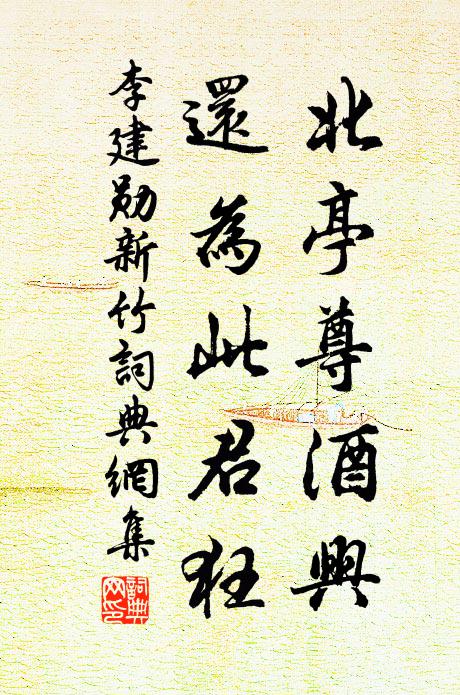 北亭尊酒興
還為此君狂
李建勋新竹詞典網集
詞典
网印